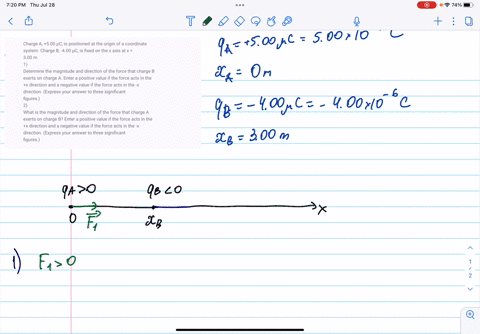 7:20 PM Thu Jul 28
74%
Charge A, +5.00 μC, is positioned at the origin of a coordinate
system. Charge B, -4.00 μC, is fixed on the x axis at x =
3.00 m.
1)
Determine the magnitude and direction of the force that charge B
exerts on charge A. Enter a positive value if the force acts in the
+x direction and a negative value if the force acts in the -x
direction. (Express your answer to three significant
figures.)
2)
What is the magnitude and direction of the force that charge A
exerts on charge B? Enter a positive value if the force acts in the
+x direction and a negative value if the force acts in the -x
direction. (Express your answer to three significant
figures.)
qA = +5.00 μC = 5.00×10 C
xA = 0 m
qB = -4.00 μC = -4.00×10⁻⁶ C
xB = 3.00 m
qA>0 qB<0
0 F₁ xB x
1) F₁>0
1
2